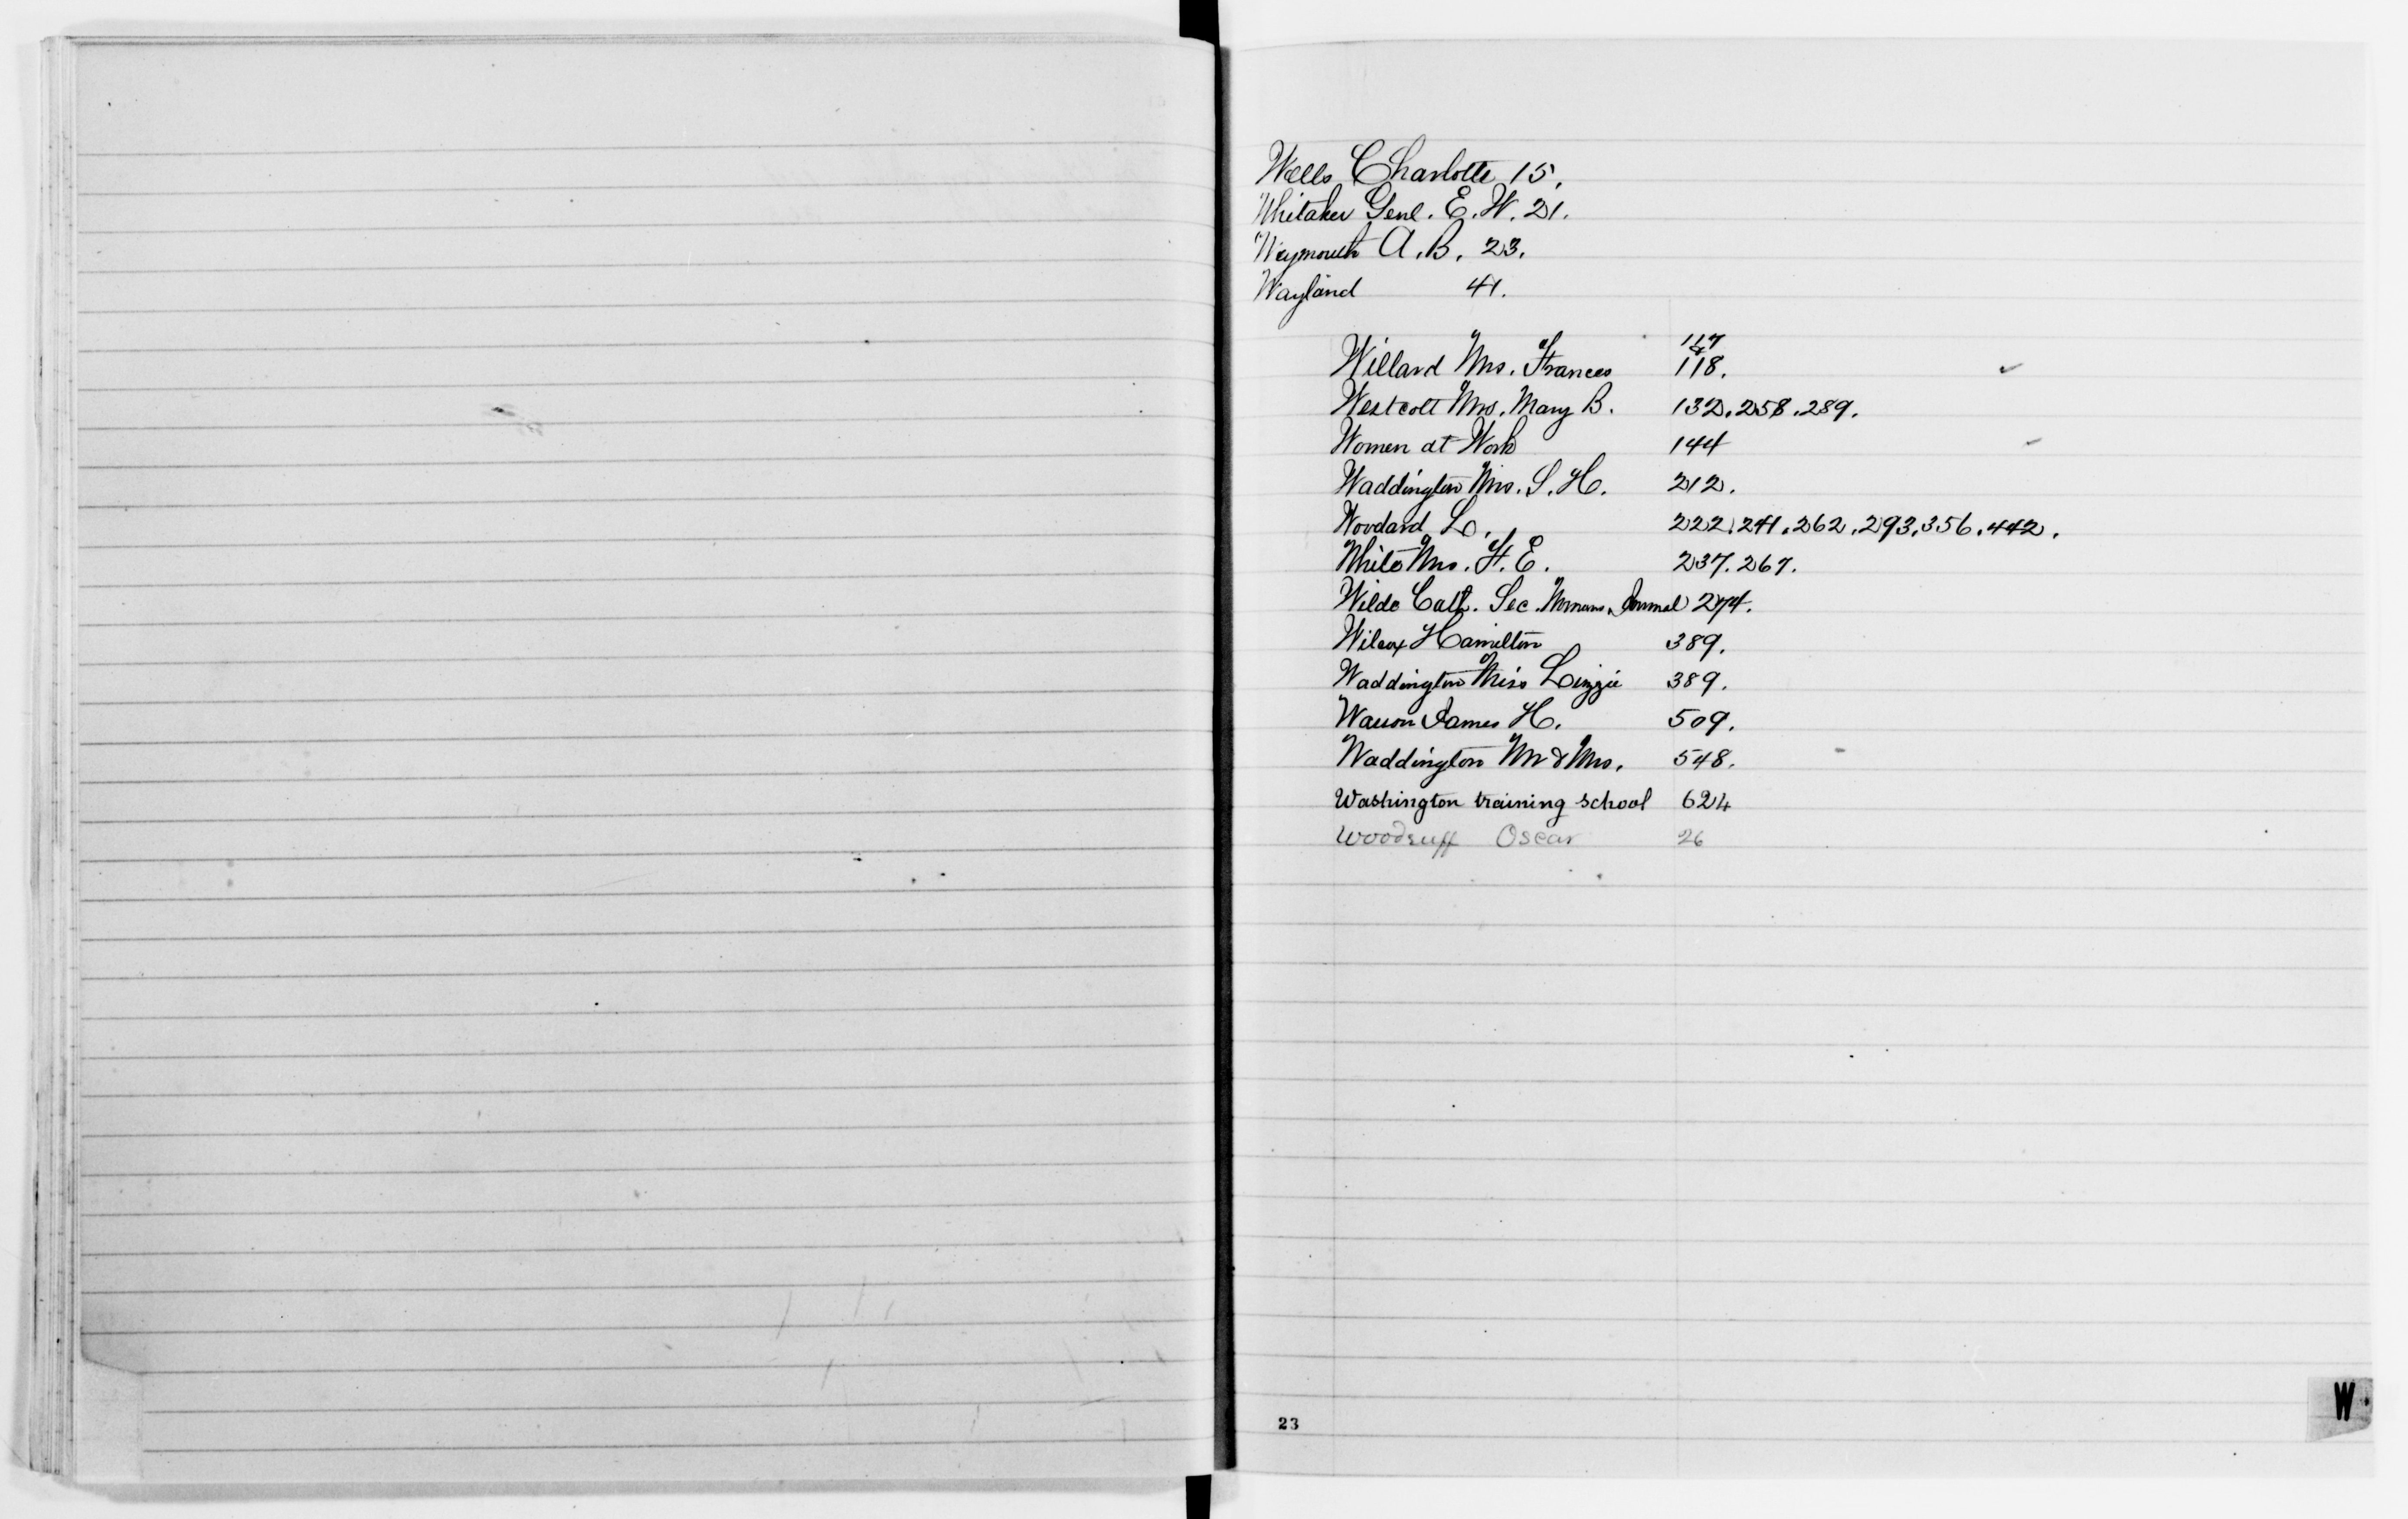 Wells Charlotte 15.
Whitaker Genl. E. W. 21.
Weymouth A. B. 23.
Wayland 41.
117
&
Willard Mrs. Frances 118.
Westcott Mrs. Mary B. 132. 258. 289.
Women at Work 144
Waddington Mrs. S. H. 212.
Woodard L. 222. 241. 262. 293. 356. 442.
White Mrs. F. E. 237. 267.
Wilde Calf. Sec. Womans Journal 274.
Wilcox Hamilton 389.
Waddington Miss Lizzie 389.
James H. 509.
Waddington Mr & Mrs. 548.
Washington training school 624
Woodruff Oscar 26
23
W